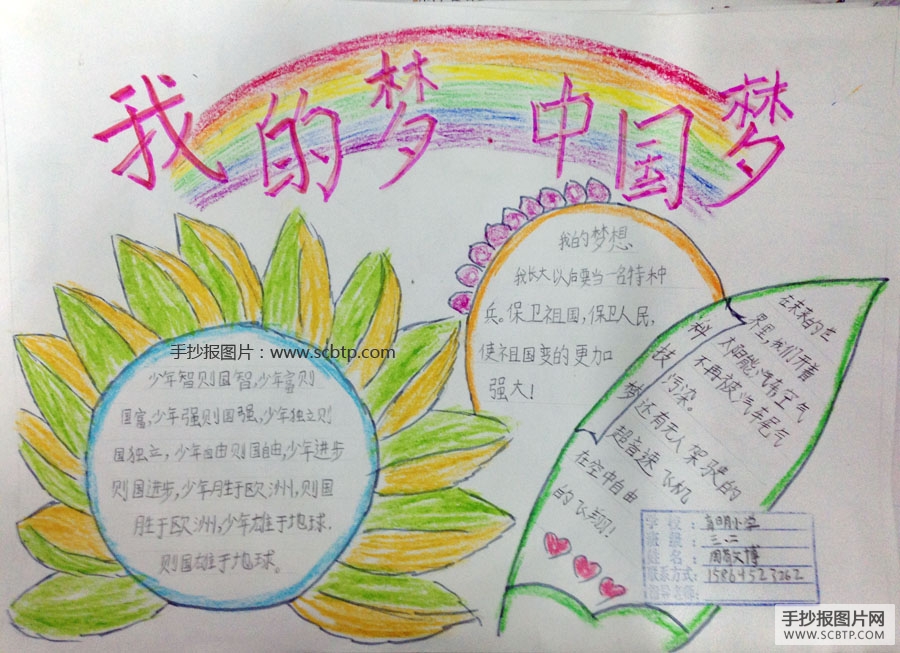 我的梦·中国梦
手抄报图片：www.scbtp.com
少年智则国智,少年富则
国富,少年强则国强,少年独立则
国独立,少年自由则国自由,少年进步
则国进步,少年胜于欧洲,则国
胜于欧洲,少年雄于地球.
则国雄于地球。
我的梦想
我长大以后要当一名特种
兵。保卫祖国,保卫人民,
使祖国变的更加
强大!
科技梦
在未来的世
界里,我们开着
太阳能汽车,空气
不再被汽车尾气
污染。
还有无人驾驶的
超音速飞机
在空中自由
的飞翔!!
学校：育明小学
班级：三.二
姓名：
联系方式：15864523262
指导老师：
手抄报图片网
WWW.SCBTP.COM